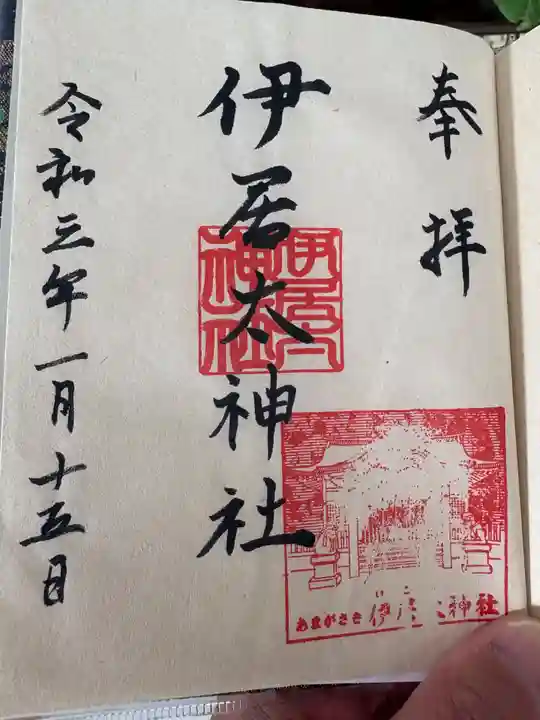 奉拝
伊居太神社
令和三年一月十五日
伊居太
神社
あまがさき 伊 神社